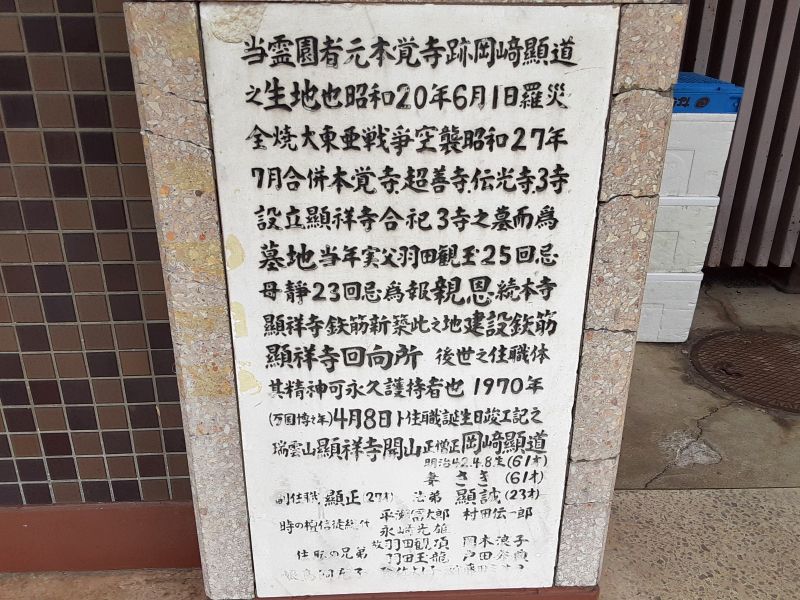 当霊園者元本覚寺跡岡﨑顯道
之生地也昭和20年6月1日羅災
全焼大東亜戦爭空襲昭和27年
7月合併本覚寺超善寺伝光寺3寺
設立顯祥寺合祀3寺之墓而爲
墓地当年実父羽田観玉25回忌
母靜23回忌爲報親恩続本寺
顯祥寺鉄筋新築此之地建設鉄筋
顯祥寺回向所 後世之住職体
其精神可永久護持者也 1970年
(万国博々年)4月8日ト住職誕生日竣工記之
瑞雲山顯祥寺開山正僧正岡﨑顯道
明治42.4.8生(61才)
妻 さき (61才)
副住職 顯正(27才) 法弟 顯誠(23才)
時の檀信徒総代 村田伝一郎
住職の兄弟 故羽田観項 岡本浪子
羽田玉龍